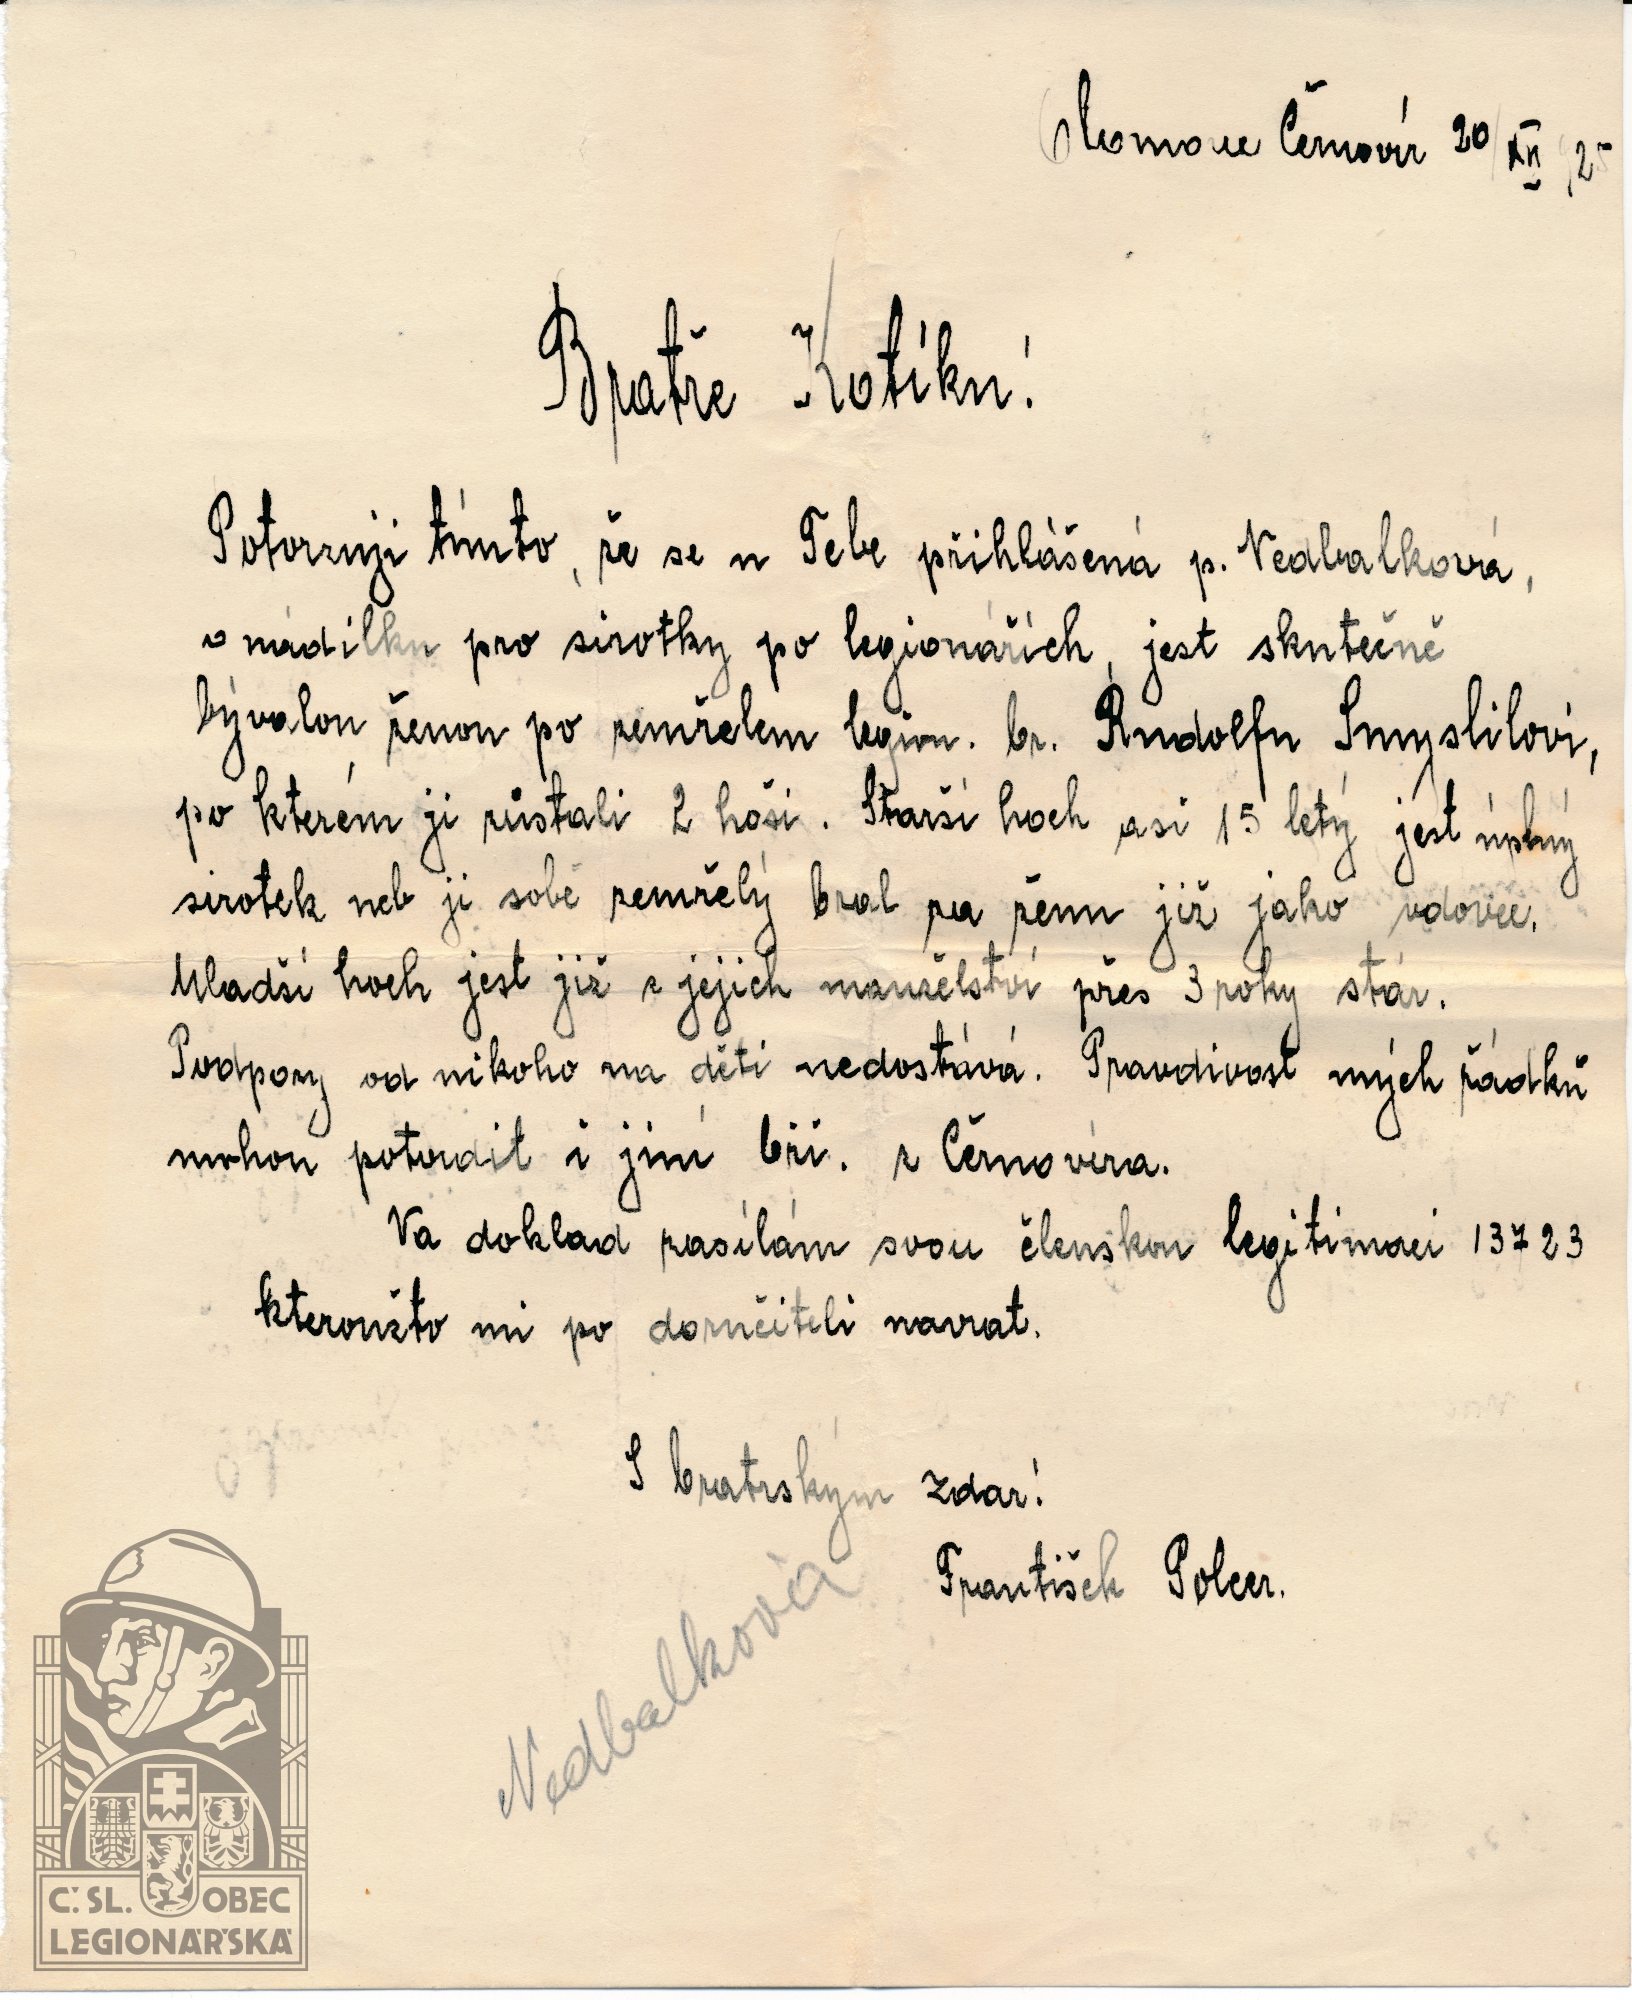 Olomouc Černovír 20/XII 925
Bratře Kotíku!
Potvrzuji tímto, že se u Tebe přihlášená p. Nedbalková,
o nádilku pro sirotky po legionářích, jest skutečně
bývalou ženou po zemřelem legion. br. Rudolfu Smyslilovi,
po kterém ji zůstali 2 hoši. Starší hoch asi 15 letý jest úplný
sirotek neb ji sobě zemřelý bral za ženu již jako vdovec.
Mladší hoch jest již z jejich manželství přes 3 roky stár.
Podpory od nikoho na děti nedostává. Pravdivost mých řádků
mohou potvrdit i jiní bři. z Černovíra.
Na doklad zasílám svou členskou legitimaci 13723
kteroužto mi po doručiteli navrat.
S bratrským Zdar!
František Polcer.
Nedbalková
Č. SL. OBEC
LEGIONÁŘSKÁ